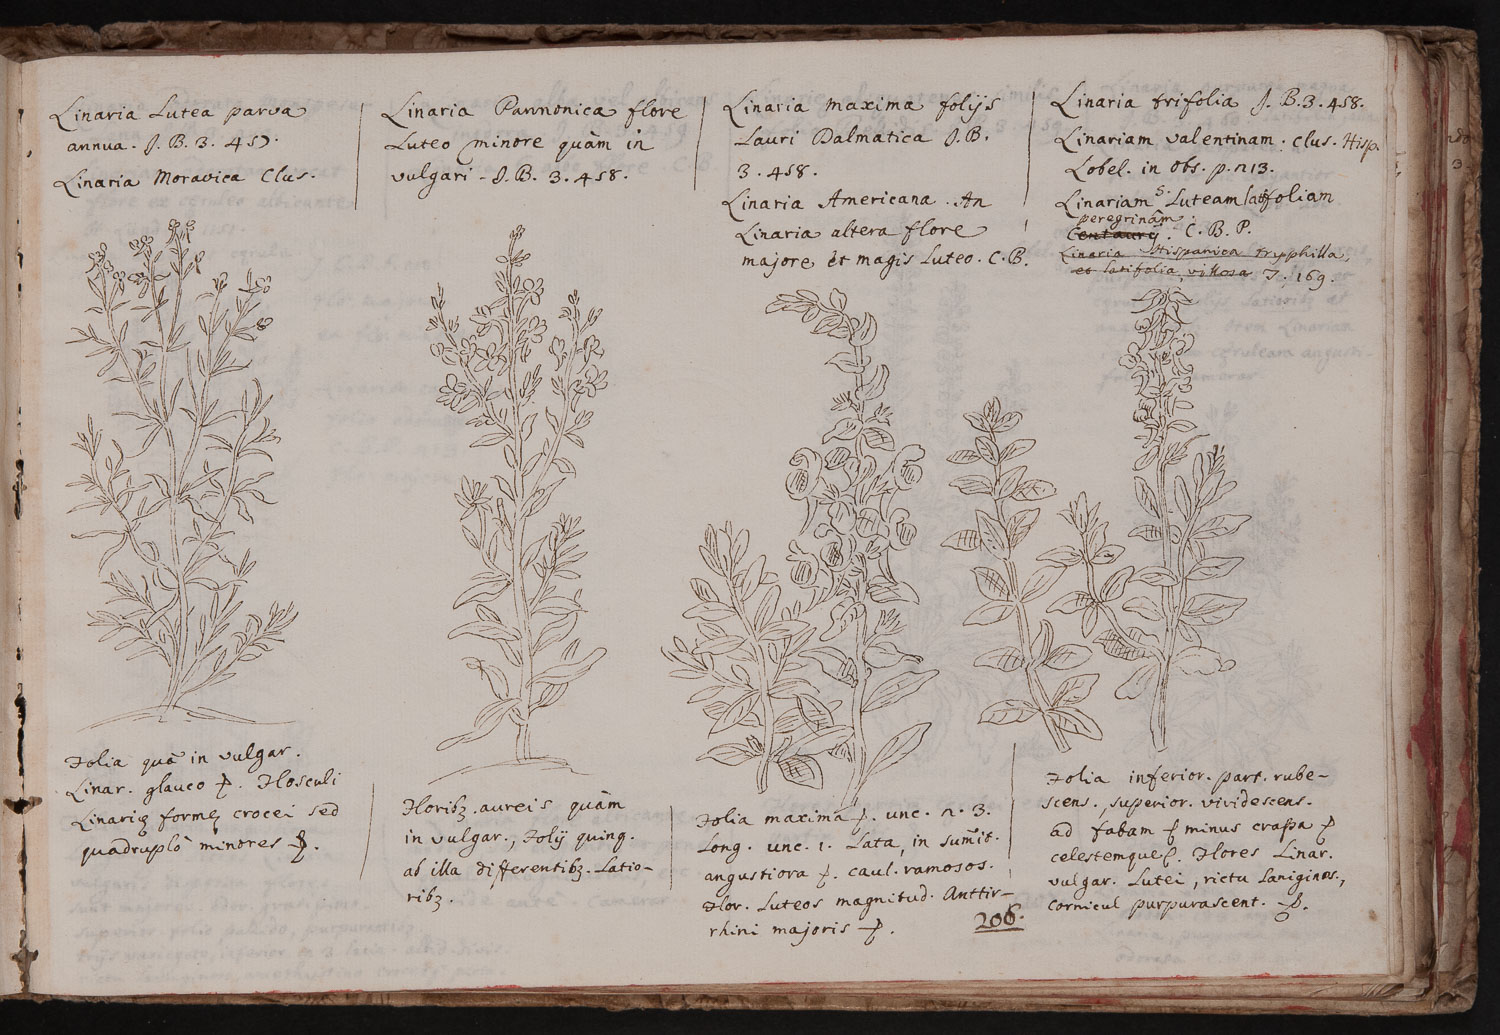 Linaria Lutea parva
annua. J. B. 3. 457.
Linaria Moravica Clus.
Linaria Pannonica flore
Luteo minore quàm in
vulgari - J. B. 3. 458.
Linaria maxima folijs
Lauri Dalmatica J. B.
3. 458.
Linaria Americana. An
Linaria altera flore
majore et magis Luteo. C. B.
Linaria trifolia J. B. 3. 458.
Linariam valentinam. Clus. Hisp.
Lobel. in Obs. p. 
Linariam S. Luteam latifoliam
peregrinam.
C. B. P.
Linaria Hispanica tripphilla,
et latifolia, villosa 7. 169.
Folia quā in vulgar.
Linar. glauco . Flosculi
Linarię formę crocei sed
quadruplò minores .
Floribz. aureis quàm
in vulgar., Folij quinq.
ab illa differentibz. Latio-
ribz.
Folia maxima . unc. n. 3.
Long. unc. 1. Lata, in sum̄it.
angustiora . caul. ramosos.
Flor. Luteos magnitud. Anttir-
rhini majoris .
206.
Folia inferior. part. rube-
scens., superior. viridescens.
ad fabam minus crassa
celestemque . Flores Linar.
vulgar. Lutei, rictu Laniginos.,
cornicul purpurascent.